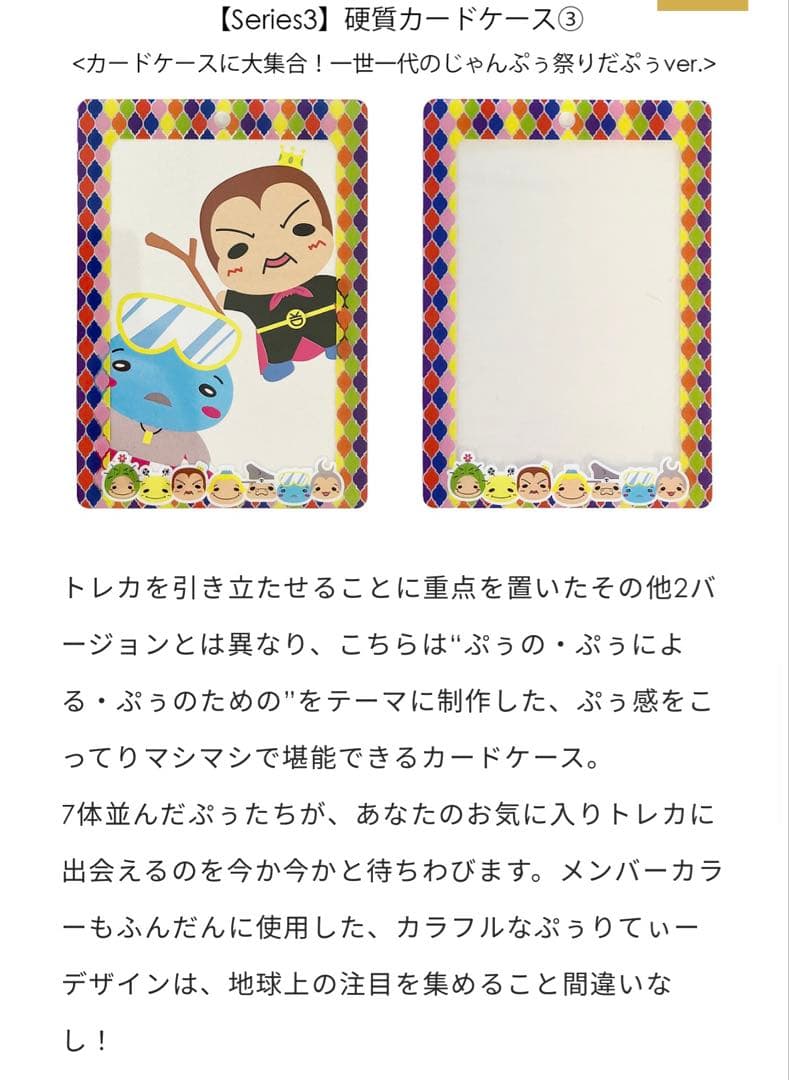 【Series3】硬質カードケース③
<カードケースに大集合！一世一代のじゃんぷぅ祭りだぷぅver.>
トレカを引き立たせることに重点を置いたその他2バ
ージョンとは異なり、こちらは“ぷぅの・ぷぅによ
る・ぷぅのための”をテーマに制作した、ぷぅ感をこ
ってりマシマシで堪能できるカードケース。
7体並んだぷぅたちが、あなたのお気に入りトレカに
出会えるのを今か今かと待ちわびます。メンバーカラ
ーもふんだんに使用した、カラフルなぷぅりてぃー
デザインは、地球上の注目を集めること間違いな
し！